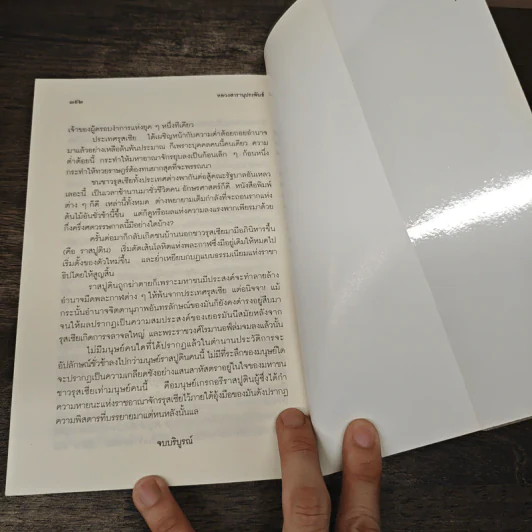 ๑๕๒
หลวงสารานุประพันธ์
เจ้าของผู้ครอบงำการแห่งยุค ๆ หนึ่งทีเดียว
ประเทศรุสเซีย ได้เผชิญหน้ากับความต่ำต้อยถอยอำนาจ
มาแล้วอย่างเหลือล้นพ้นประมาณ ก็เพราะบุคคลคนนี้คนเดียว ความ
ต่ำต้อยนี้ กระทำให้มหาอาณาจักรยุบลงเป็นก้อนเล็ก ๆ ก้อนหนึ่ง
กระทำให้ทวยราษฎร์ต้องทนยากสุดที่จะพรรณนา
ชนชาวรุสเซียทั้งประเทศต่างพากันต่อสู้คณะรัฐบาลอันเหลว
เลอะนี้ เป็นเวลาช้านานมาชั่วชีวิตคน อักษรศาสตร์ก็ดี หนังสือพิมพ์
ต่าง ๆ ก็ดี เหล่านี้ทั้งหมด ต่างพยายามเต็มกำลังที่จะถอนรากแห่ง
ต้นไม้อันชั่วช้านี้ขึ้น แต่ก็ดูหรือผลแห่งความลงแรงพากเพียรมาด้วย
กึ่งครึ่งศตวรรษกาลนี้มีอย่างใดบ้าง?
ครั้นต่อมาก็กลับเกิดชนบ้านนอกชาวรุสเซียมามีอภินิหารขึ้น
(คือ ราสปูติน) เริ่มตัดเส้นโลหิตแห่งพละกาฬซึ่งมีอยู่เดิมให้หมดไป
เริ่มตั้งของตัวใหม่ขึ้น และย่ำเหยียบกฎแบบธรรมเนียมแห่งราชา
ธิปไตยให้สูญสิ้น
ราสปูตินถูกฆ่าตายก็เพราะมหาชนมีประสงค์จะทำลายล้าง
อำนาจมืดพละกาฬต่าง ๆ ให้พ้นจากประเทศรุสเซีย แต่อนิจจา แม้
กระนั้นอำนาจจิตตานุภาพอันทรลักษณ์ของมันก็ยังคงดำรงอยู่สืบมา
จนให้ผลปรากฏเป็นความสมประสงค์ของเยอรมันนีสมัยหลังจาก
รุสเซียเกิดการจลาจลใหญ่ และพระราชวงศ์โรมานอฟีล่มจมลงแล้วนั้น
ไม่มีมนุษย์คนใดที่ได้ปรากฏแล้วในตำนานประวัติการจะ
อัปลักษณ์ชั่วช้าลงไปกว่ามนุษย์ราสปูตินคนนี้ ไม่มีที่ระลึกของมนุษย์ใด
จะปรากฏเป็นความเกลียดชังอย่างแสนสาหัสตราอยู่ในใจของมหาชน
ชาวรุสเซียเท่ามนุษย์คนนี้ คือมนุษย์เกรกอรีราสปูตินผู้ซึ่งได้กำ
ความหายนะแห่งราชอาณาจักรรุสเซียไว้ภายใต้อุ้งมือของมันดังปรากฏ
ความพิสดารที่บรรยายมาแต่หนหลังนั้นแล
จบบริบูรณ์